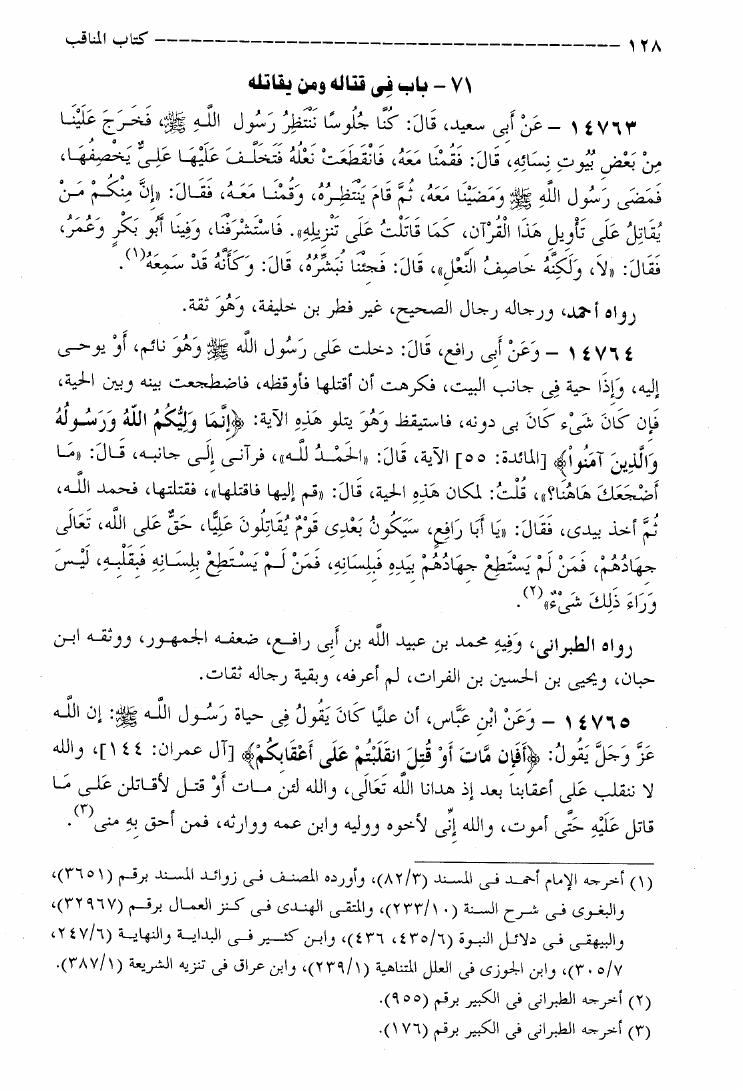 ١٢٨ ------------------------------------------------ كتاب المناقب
٧١ - باب فِى قتاله ومن يقاتله
١٤٧٦٣ - عَنْ أَبِى سعيد، قَالَ: كُنَّا جُلُوسًا نَنْتَظِرُ رَسُول اللَّهِ ﷺ، فَخَرَجَ عَلَيْنَا
مِنْ بَعْضِ بُيُوتِ نِسَائِهِ، قَالَ: فَقُمْنَا مَعَهُ، فَانْقَطَعَتْ نَعْلُهُ فَتَخَلَّفَ عَلَيْهَا عَلِىٌّ يَخْصِفُهَا،
فَمَضَى رَسُول اللَّهِ ﷺ وَمَضَيْنَا مَعَهُ، ثُمَّ قَامَ يَنْتَظِرُهُ، وَقُمْنَا مَعَهُ، فَقَالَ: «إِنَّ مِنْكُمْ مَنْ
يُقَاتِلُ عَلَى تَأْوِيلِ هَذَا الْقُرْآنِ، كَمَا قَاتَلْتُ عَلَى تَنْزِيلِهِ». فَاسْتَشْرَفْنَا، وَفِينَا أَبُو بَكْرٍ وَعُمَرُ،
فَقَالَ: «لاَ، وَلَكِنَّهُ خَاصِفُ النَّعْلِ»، قَالَ: فَجِئْنَا نُبَشِّرُهُ، قَالَ: وَكَأَنَّهُ قَدْ سَمِعَهُ(١).
رواه أحمد، ورجاله رجال الصحيح، غير فطر بن خليفة، وَهُوَ ثقة.
١٤٧٦٤ - وَعَنْ أَبِى رافع، قَالَ: دخلت عَلَى رَسُول اللَّه ﷺ وَهُوَ نائم، أَوْ يوحى
إليه، وَإِذَا حية فِى جانب البيت، فكرهت أن أقتلها فأوقظه، فاضطجعت بينه وبين الحية،
فَإِن كَانَ شَىْء كَانَ بى دونه، فاستيقظ وَهُوَ يتلو هَذِهِ الآية: ﴿إِنَّمَا وَلِيُّكُمُ اللَّهُ وَرَسُولُهُ
وَالَّذِينَ آمَنُواْ﴾ [المائدة: ٥٥] الآية، قَالَ: «الحَمْدُ للَّه»، فرآنى إِلَى جانبه، قَالَ: «مَا
أَضْجَعَكَ هَاهُنَا؟»، قُلْتُ: لمكان هَذِهِ الحية، قَالَ: «قم إليها فاقتلها»، فقتلتها، فحمد اللَّه،
ثُمَّ أخذ بيدى، فَقَالَ: «يَا أَبَا رَافِعٍ، سَيَكُونُ بَعْدِى قَوْمٌ يُقَاتِلُونَ عَلِيًّا، حَقٌّ عَلَى اللَّه، تَعَالَى
جِهَادُهُمْ، فَمَنْ لَمْ يَسْتَطِعْ جِهَادُهُمْ بِيَدِهِ فَبِلِسَانِهِ، فَمَنْ لَمْ يَسْتَطِعْ بِلِسَانِهِ فَبِقَلْبِهِ، لَيْسَ
وَرَاءَ ذَلِكَ شَىْءٌ»(٢).
رواه الطبرانى، وَفِيهِ محمد بن عبيد اللَّه بن أَبِى رافع، ضعفه الجمهور، ووثقه ابن
حبان، ويحيى بن الحسين بن الفرات، لم أعرفه، وبقية رجاله ثقات.
١٤٧٦٥ - وَعَنْ ابْنِ عَبَّاس، أن عليًا كَانَ يَقُولُ فِى حياة رَسُول اللَّه ﷺ: إن اللَّه
عَزَّ وَجَلَّ يَقُولُ: ﴿أَفَإِن مَّاتَ أَوْ قُتِلَ انقَلَبْتُمْ عَلَى أَعْقَابِكُمْ﴾ [آل عمران: ١٤٤]، والله
لا ننقلب عَلَى أعقابنا بعد إذ هدانا اللَّه تَعَالَى، والله لئن مات أَوْ قتل لأقاتلن عَلَى مَا
قاتل عَلَيْهِ حَتَّى أموت، والله إِنِّى لأخوه ووليه وابن عمه ووارثه، فمن أحق بِهِ منى(٣).
(١) أخرجه الإمام أحمد فى المسند (٨٢/٣)، وأورده المصنف فى زوائد المسند برقم (٣٦٥١)،
والبغوى فى شرح السنة (٢٣٣/١٠)، والمتقى الهندى فى كنز العمال برقم (٣٢٩٦٧)،
والبيهقى فى دلائل النبوة (٤٣٥/٦، ٤٣٦)، وابن كثير فى البداية والنهاية (٢٤٧/٦،
٣٠٥/٧)، وابن الجوزى فى العلل المتناهية (٢٣٩/١)، وابن عراق فى تنزيه الشريعة (٣٨٧/١).
(٢) أخرجه الطبرانى فى الكبير برقم (٩٥٥).
(٣) أخرجه الطبرانى فى الكبير برقم (١٧٦).